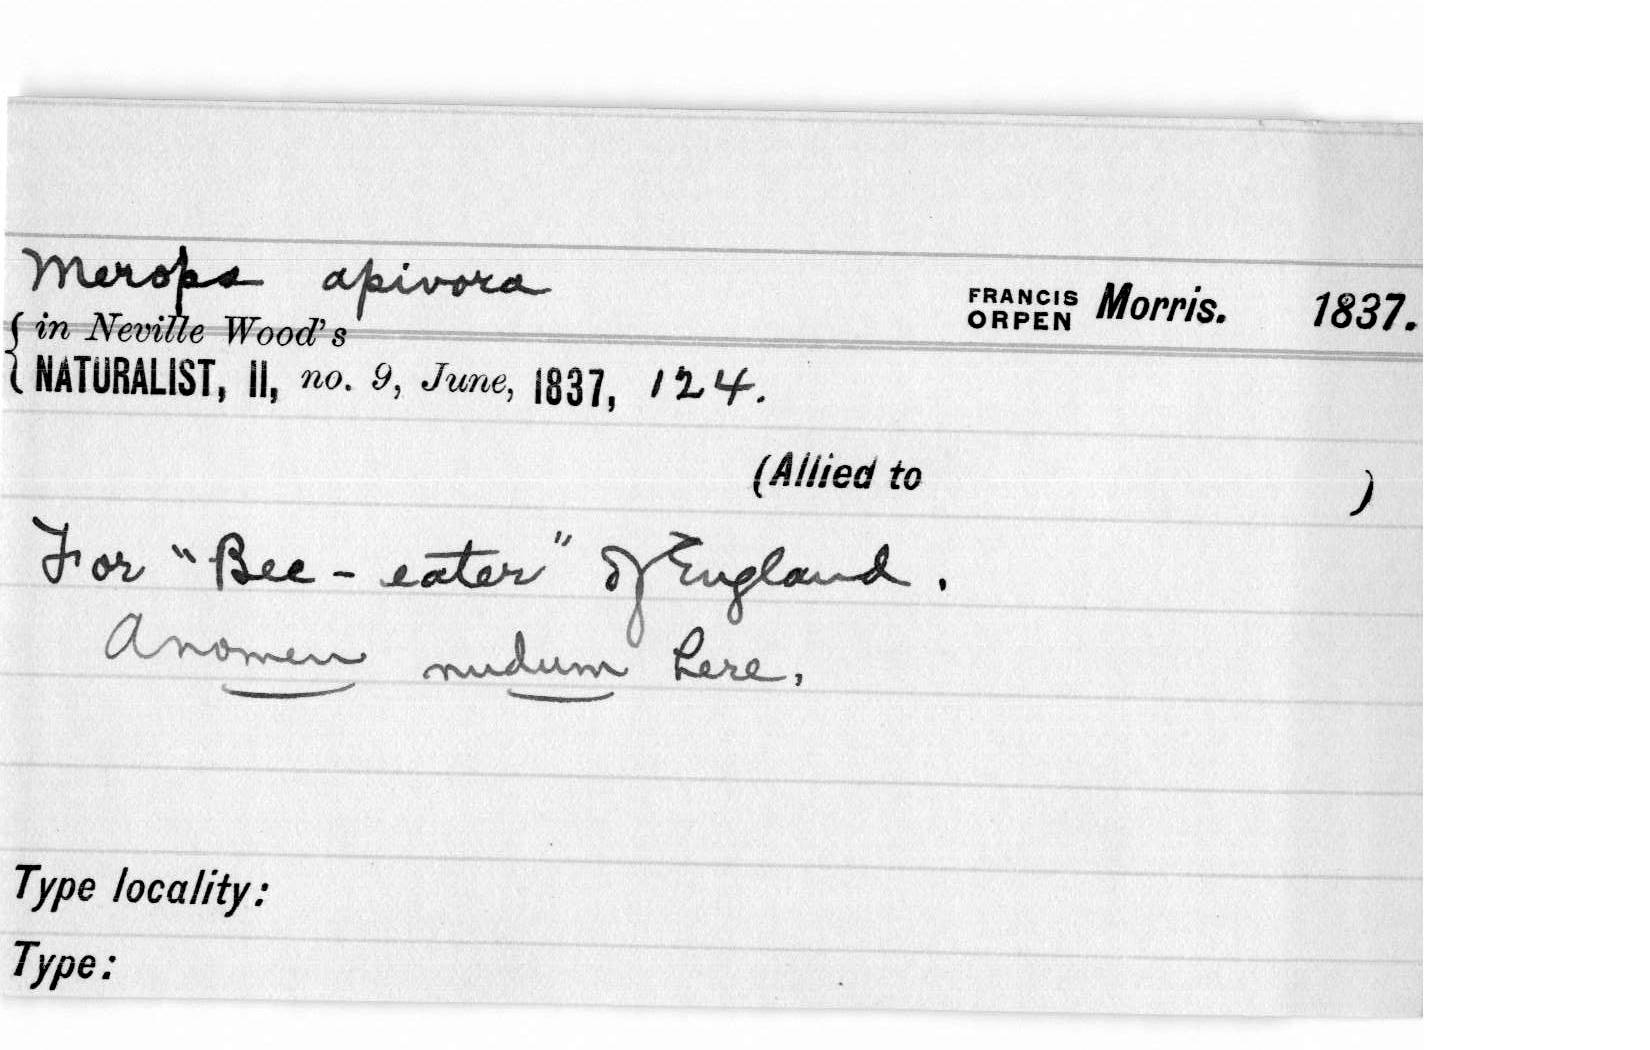 Merops apivora
FRANCIS ORPEN Morris. 1837.
{ in Neville Wood's
{ NATURALIST, II, no. 9, June, 1837, 124.
(Allied to )
For "Bee-eater" of England.
A nomen nudum here.
Type locality:
Type: